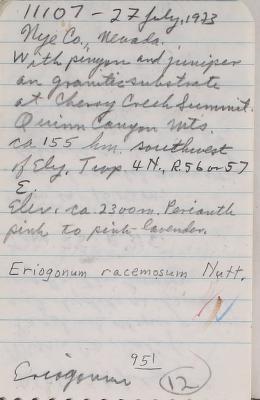 11107 - 27 July, 1973
Nye Co., Nevada.
With pinyon and juniper
on granitic substrate
at Cherry Creek Summit.
Quinn Canyon Mts.
ca 155 km. southwest
of Ely, Twp. 4 N., R. 56 or 57
E.
Elev. ca. 2300 m. Perianth
pink to pink-lavender.
Eriogonum racemosum Nutt.
951
Eriogonum 12